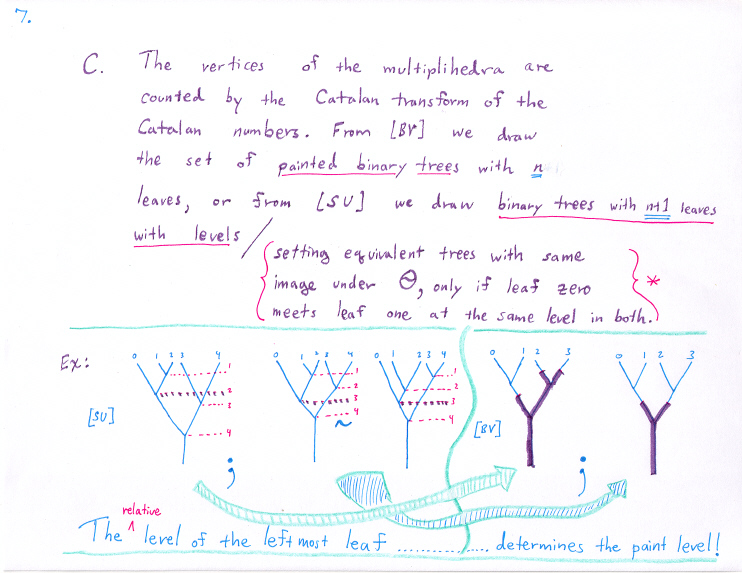 7.
C. The vertices of the multiplihedra are
counted by the Catalan transform of the
Catalan numbers. From [BV] we draw
the set of painted binary trees with n
leaves, or from [SU] we draw binary trees with n+1 leaves
with levels /
setting equivalent trees with same
image under Θ, only if leaf zero
meets leaf one at the same level in both. *
Ex:
0 1 2 3 4
0 1 2 3 4
0 1 2 3 4
0 1 2 3
0 1 2 3
1
2
3
4
1
2
3
4
1
2
3
4
[SU]
~
[BV]
;
;
relative
The ^ level of the left most leaf .............. determines the paint level!